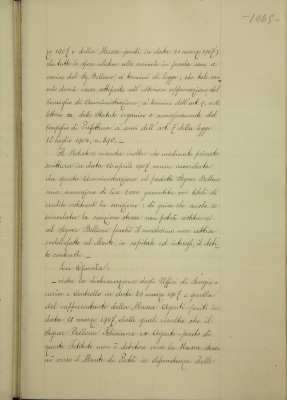 -1065-
zo 1907 e della Massa-periti in data 21 marzo 1907;
che tutte le spese relative allo svincolo in parola sono a
carico del Sig. Bellono, a termini di legge; che tale svincolo
dovrà essere sottoposto all'ulteriore approvazione del
Consiglio di Amministrazione, a termini dell'art. 9,
lettera e, dello Statuto organico e successivamente del
Consiglio di Prefettura a' sensi dell'art. 7 della legge
18 luglio 1904, n. 390. —
Il Relatore ricorda inoltre che mediante privata
scrittura in data 16 aprile 1907 venne accordata
da questa Amministrazione al predetto Signor Bellono
una sovvenzione di Lire 2000 garantita coi titoli di
credito costituenti la cauzione; di guisa che anche se
svincolata la cauzione stessa non potrà restituirsi
al Signor Bellono finchè il medesimo non abbia
soddisfatto al Monte, in capitale ed interessi, il debito
contratto. —
La Giunta:
— vista la dichiarazione degli Uffici di Ragioneria
e Controllo in data 30 marzo 1907 e quella
del rappresentante della Massa Agenti-periti in
data 21 marzo 1907, dalle quali risulta che il
Signor Bellono Feliciano ex Agente-perito di
questo Istituto non è debitore verso la Massa stessa
nè verso il Monte di Pietà in dipendenza delle